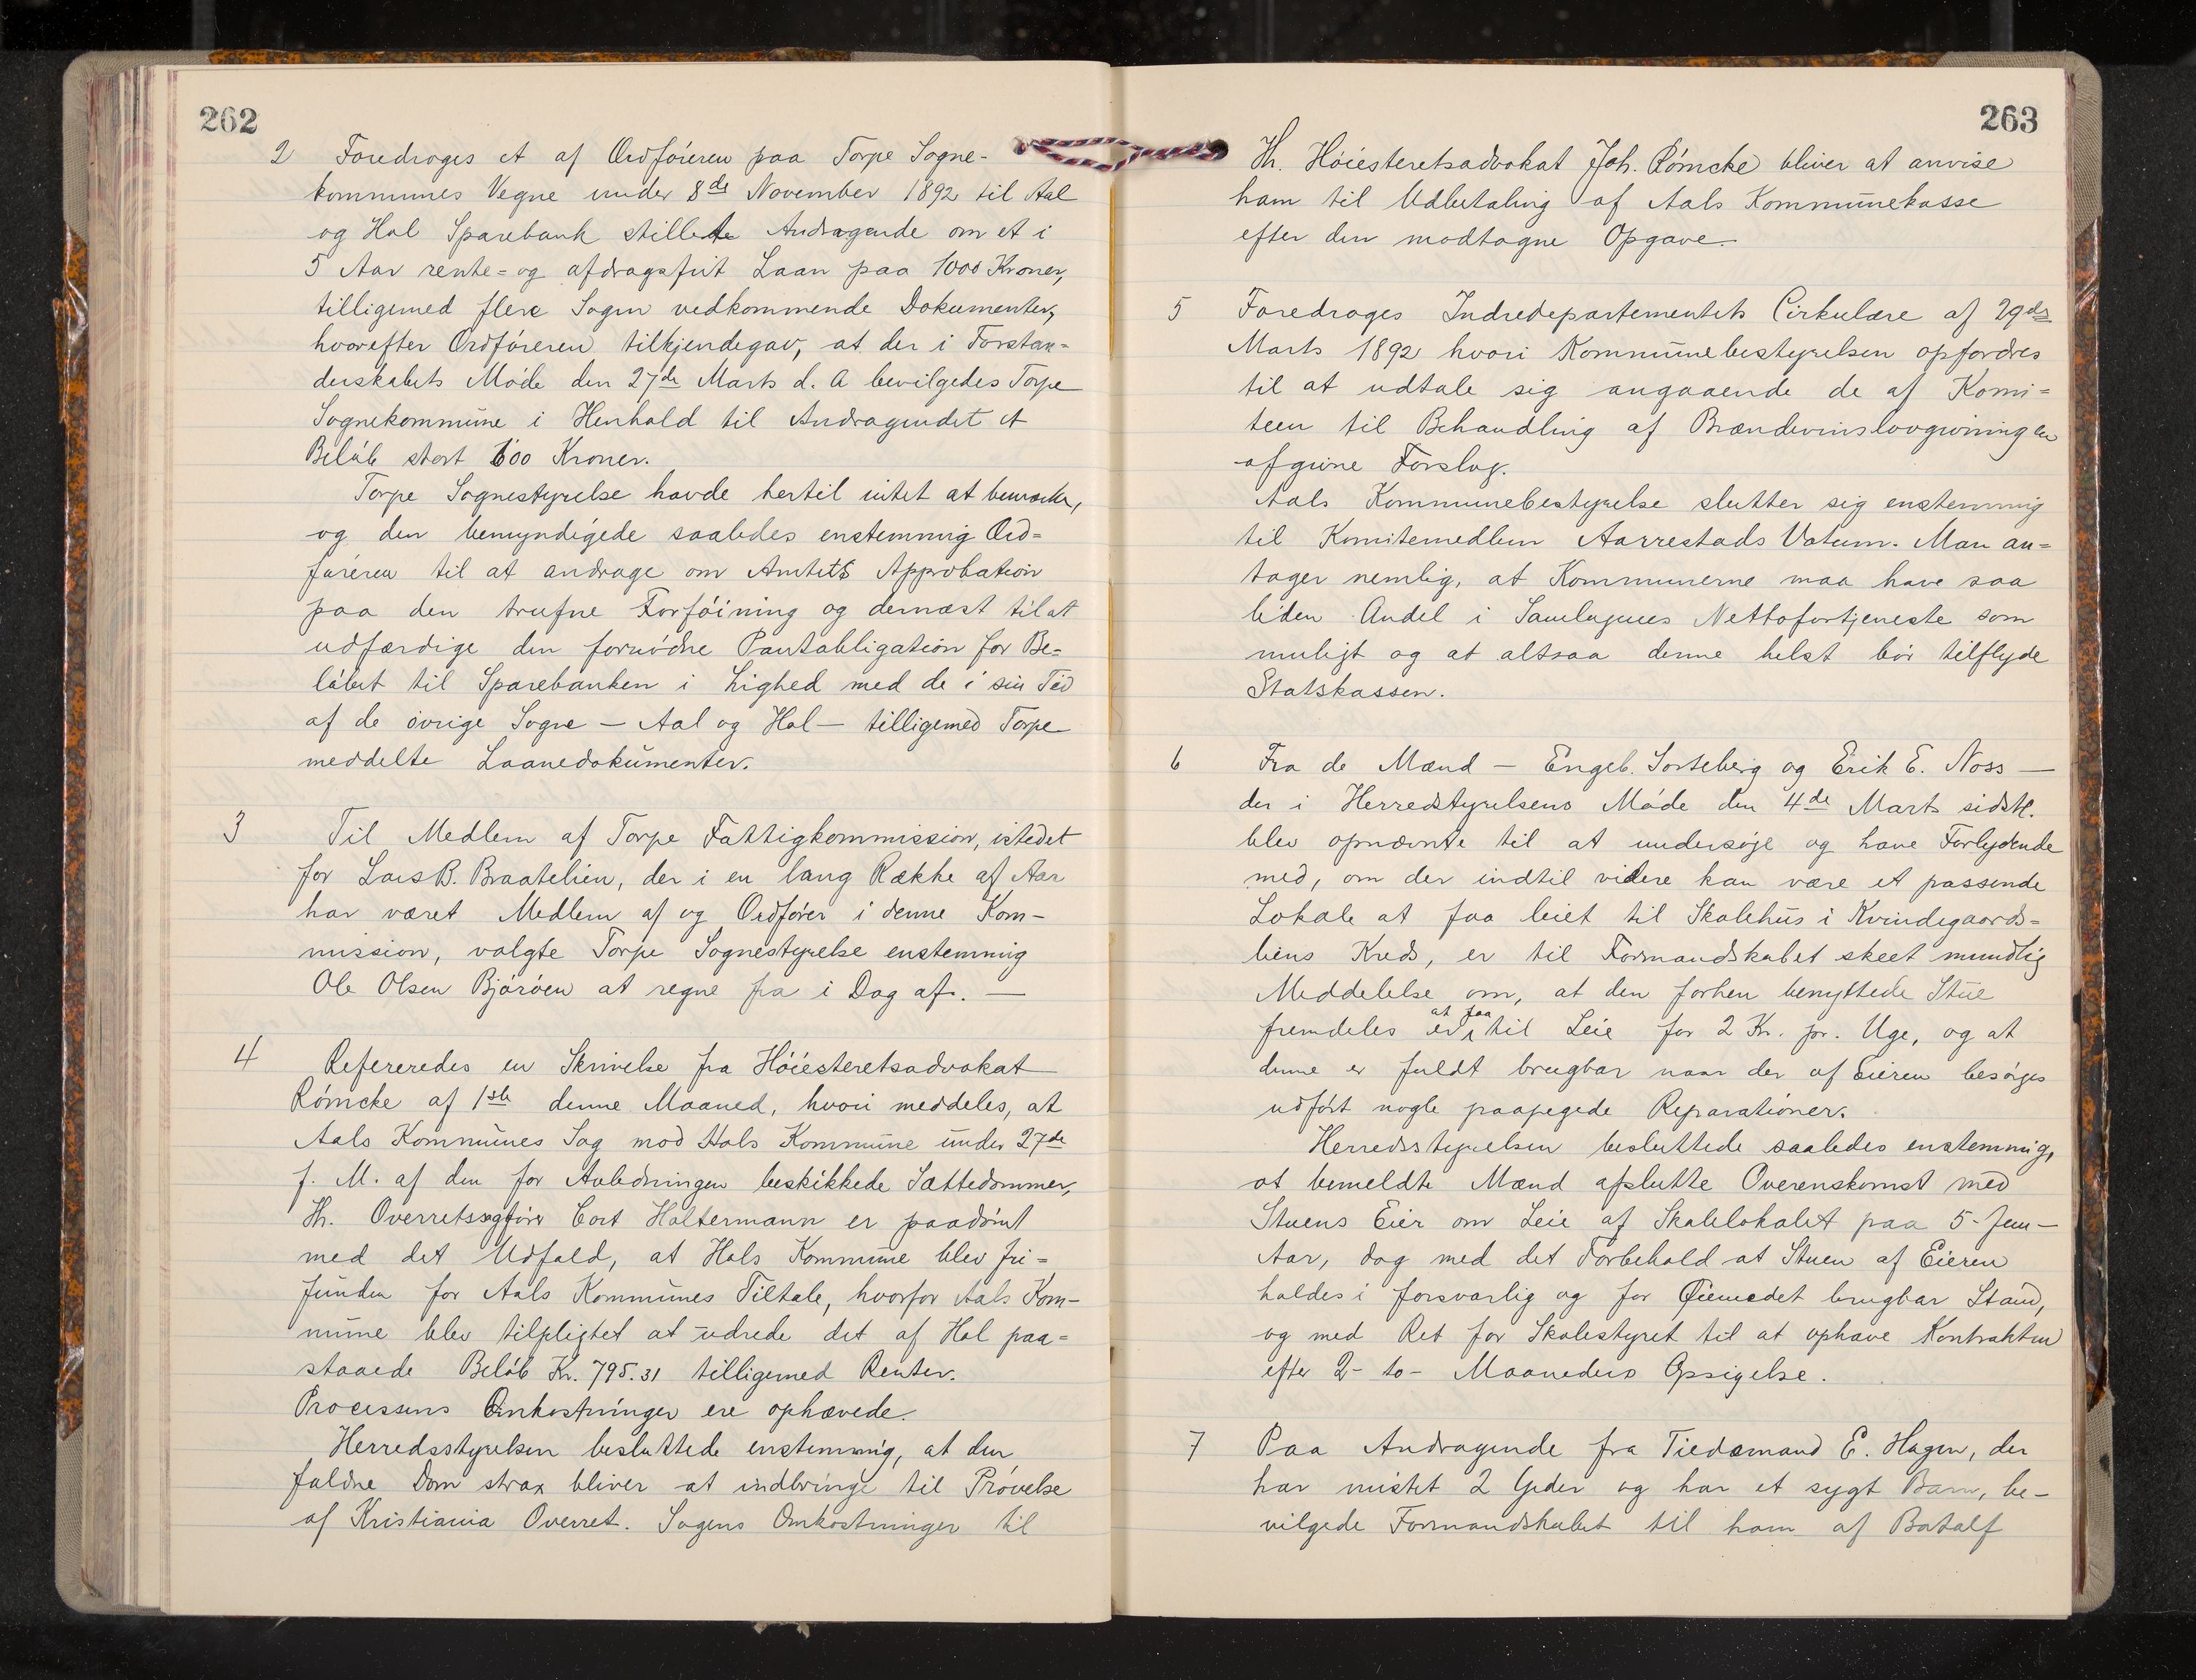 262
2 Foredroges et af Ordføreren paa Torpe Sogne-
kommunes Vegne under 8de November 1892 til Aal
og Hol Sparebank stillede Andragende om et i
5 Aar rente= og afdragsfrit Laan paa 1000 Kroner,
tilligemed flere Sagen vedkommende Dokumenter,
hvorefter Ordføreren tilkjendegav, at der i Forstan=
derskabets Møde den 27de Marts d. A bevilgedes Torpe
Sognekommune i Henhold til Andragendet et
Beløb stort 600 Kroner.
Torpe Sognestyrelse havde hertil intet at bemærke,
og den bemyndigede saaledes enstemmig Ord=
føreren til at andrage om Amtets Approbation
paa den trufne Forføining og dernæst til at
udfærdige den fornødne Pantobligation for Be=
løbet til Sparebanken i Lighed med de i sin Tid
af de øvrige Sogne — Aal og Hol — tilligemed Torpe
meddelte Laanedokumenter.
3 Til Medlem af Torpe Fattigkommission, istedet
for Lars B. Braatelien, der i en lang Række af Aar
har været Medlem af og Ordfører i denne Kom-
mission, valgte Torpe Sognestyrelse enstemmig
Ole Olsen Bjørøen at regne fra i Dag af. —
4 Refereredes en Skrivelse fra Høiesteretsadvokat
Rømcke af 1ste denne Maaned, hvori meddeles, at
Aals Kommunes Sag mod Hols Kommune under 27de
f. M. af den for Anledningen beskikkede Sættedommer,
Hr. Overretssagfører Cort Holtermann er paadømt
med det Udfald, at Hols Kommune blev fri=
funden for Aals Kommunes Tiltale, hvorfor Aals Kom-
mune blev tilpligtet at udrede det af Hol paa=
staaede Beløb Kr. 795.31 tilligemed Renter.
Processens Omkostninger ere ophævede.
Herredsstyrelsen besluttede enstemmig, at den
faldne Dom strax bliver at indbringe til Prøvelse
af Kristiania Overret. Sagens Omkostninger til
263
Hr. Høiesteretsadvokat Joh. Rømcke bliver at anvise
ham til Udbetaling af Aals Kommunekasse
efter den modtagne Opgave.
5 Foredroges Indredepartementets Cirkulære af 29de
Marts 1892 hvori Kommunebestyrelsen opfordres
til at udtale sig angaaende de af Komi=
teen til Behandling af Brændevinslovgivningen
afgivne Forslag.
Aals Kommunebestyrelse slutter sig enstemmig
til Komitemedlem Aarrestads Votum. Man an=
tager nemlig, at Kommunerne maa have saa
liden Andel i Samlagenes Nettofortjeneste som
muligt og at altsaa denne helst bør tilflyde
Statskassen.
6 Fra de Mænd — Engeb. Sorteberg og Erik E. Noss —
der i Herredstyrelsens Møde den 4de Marts sidstl.
blev opnævnte til at undersøge og have Forlydende
med, om der indtil videre kan være et passende
Lokale at faa leiet til Skolehus i Kvindegaards=
liens Kreds, er til Formandskabet skeet mundlig
Meddelelse om, at den forhen benyttede Stue
fremdeles er at faa til Leie for 2 Kr. pr. Uge, og at
denne er fuldt brugbar naar der af Eieren besørges
udført nogle paapegede Reparationer.
Herredsstyrelsen besluttede saaledes enstemmig,
at bemeldte Mænd afslutte Overenskomst med
Stuens Eier om Leie af Skolelokalet paa 5- fem —
Aar, dog med det Forbehold at Stuen af Eieren
holdes i forsvarlig og for Øiemedet brugbar Stand,
og med Ret for Skolestyret til at ophæve Kontrakten
efter 2- to- Maaneders Opsigelse.
7 Paa Andragende fra Tiedemand E. Hagen, der
har mistet 2 Geder og har et sygt Barn, be-
vilgede Formandskabet til ham af Botolf